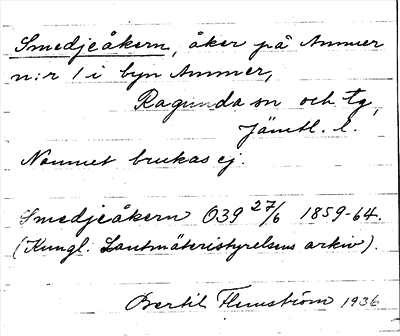 Smedjeåkern, åker på Ammer
n:r 1 i byn Ammer,
Ragunda sn och tg,
Jämtl. l.
Namnet brukas ej.
Smedjeåkern O39 27/6 1859-64.
(Kungl. Lantmäteristyrelsens arkiv).
Bertil Flemström 1936